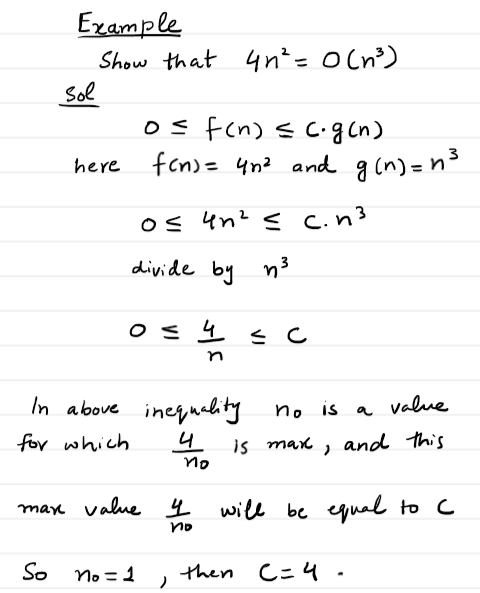 Example
Show that 4n² = O(n³)
Sol
0 ≤ f(n) ≤ C·g(n)
here f(n) = 4n² and g(n) = n³
0 ≤ 4n² ≤ C. n³
divide by n³
0 ≤ 4/n ≤ C
In above inequality n₀ is a value
for which 4/n₀ is max, and this
max value 4/n₀ will be equal to C
So n₀ = 1, then C = 4.